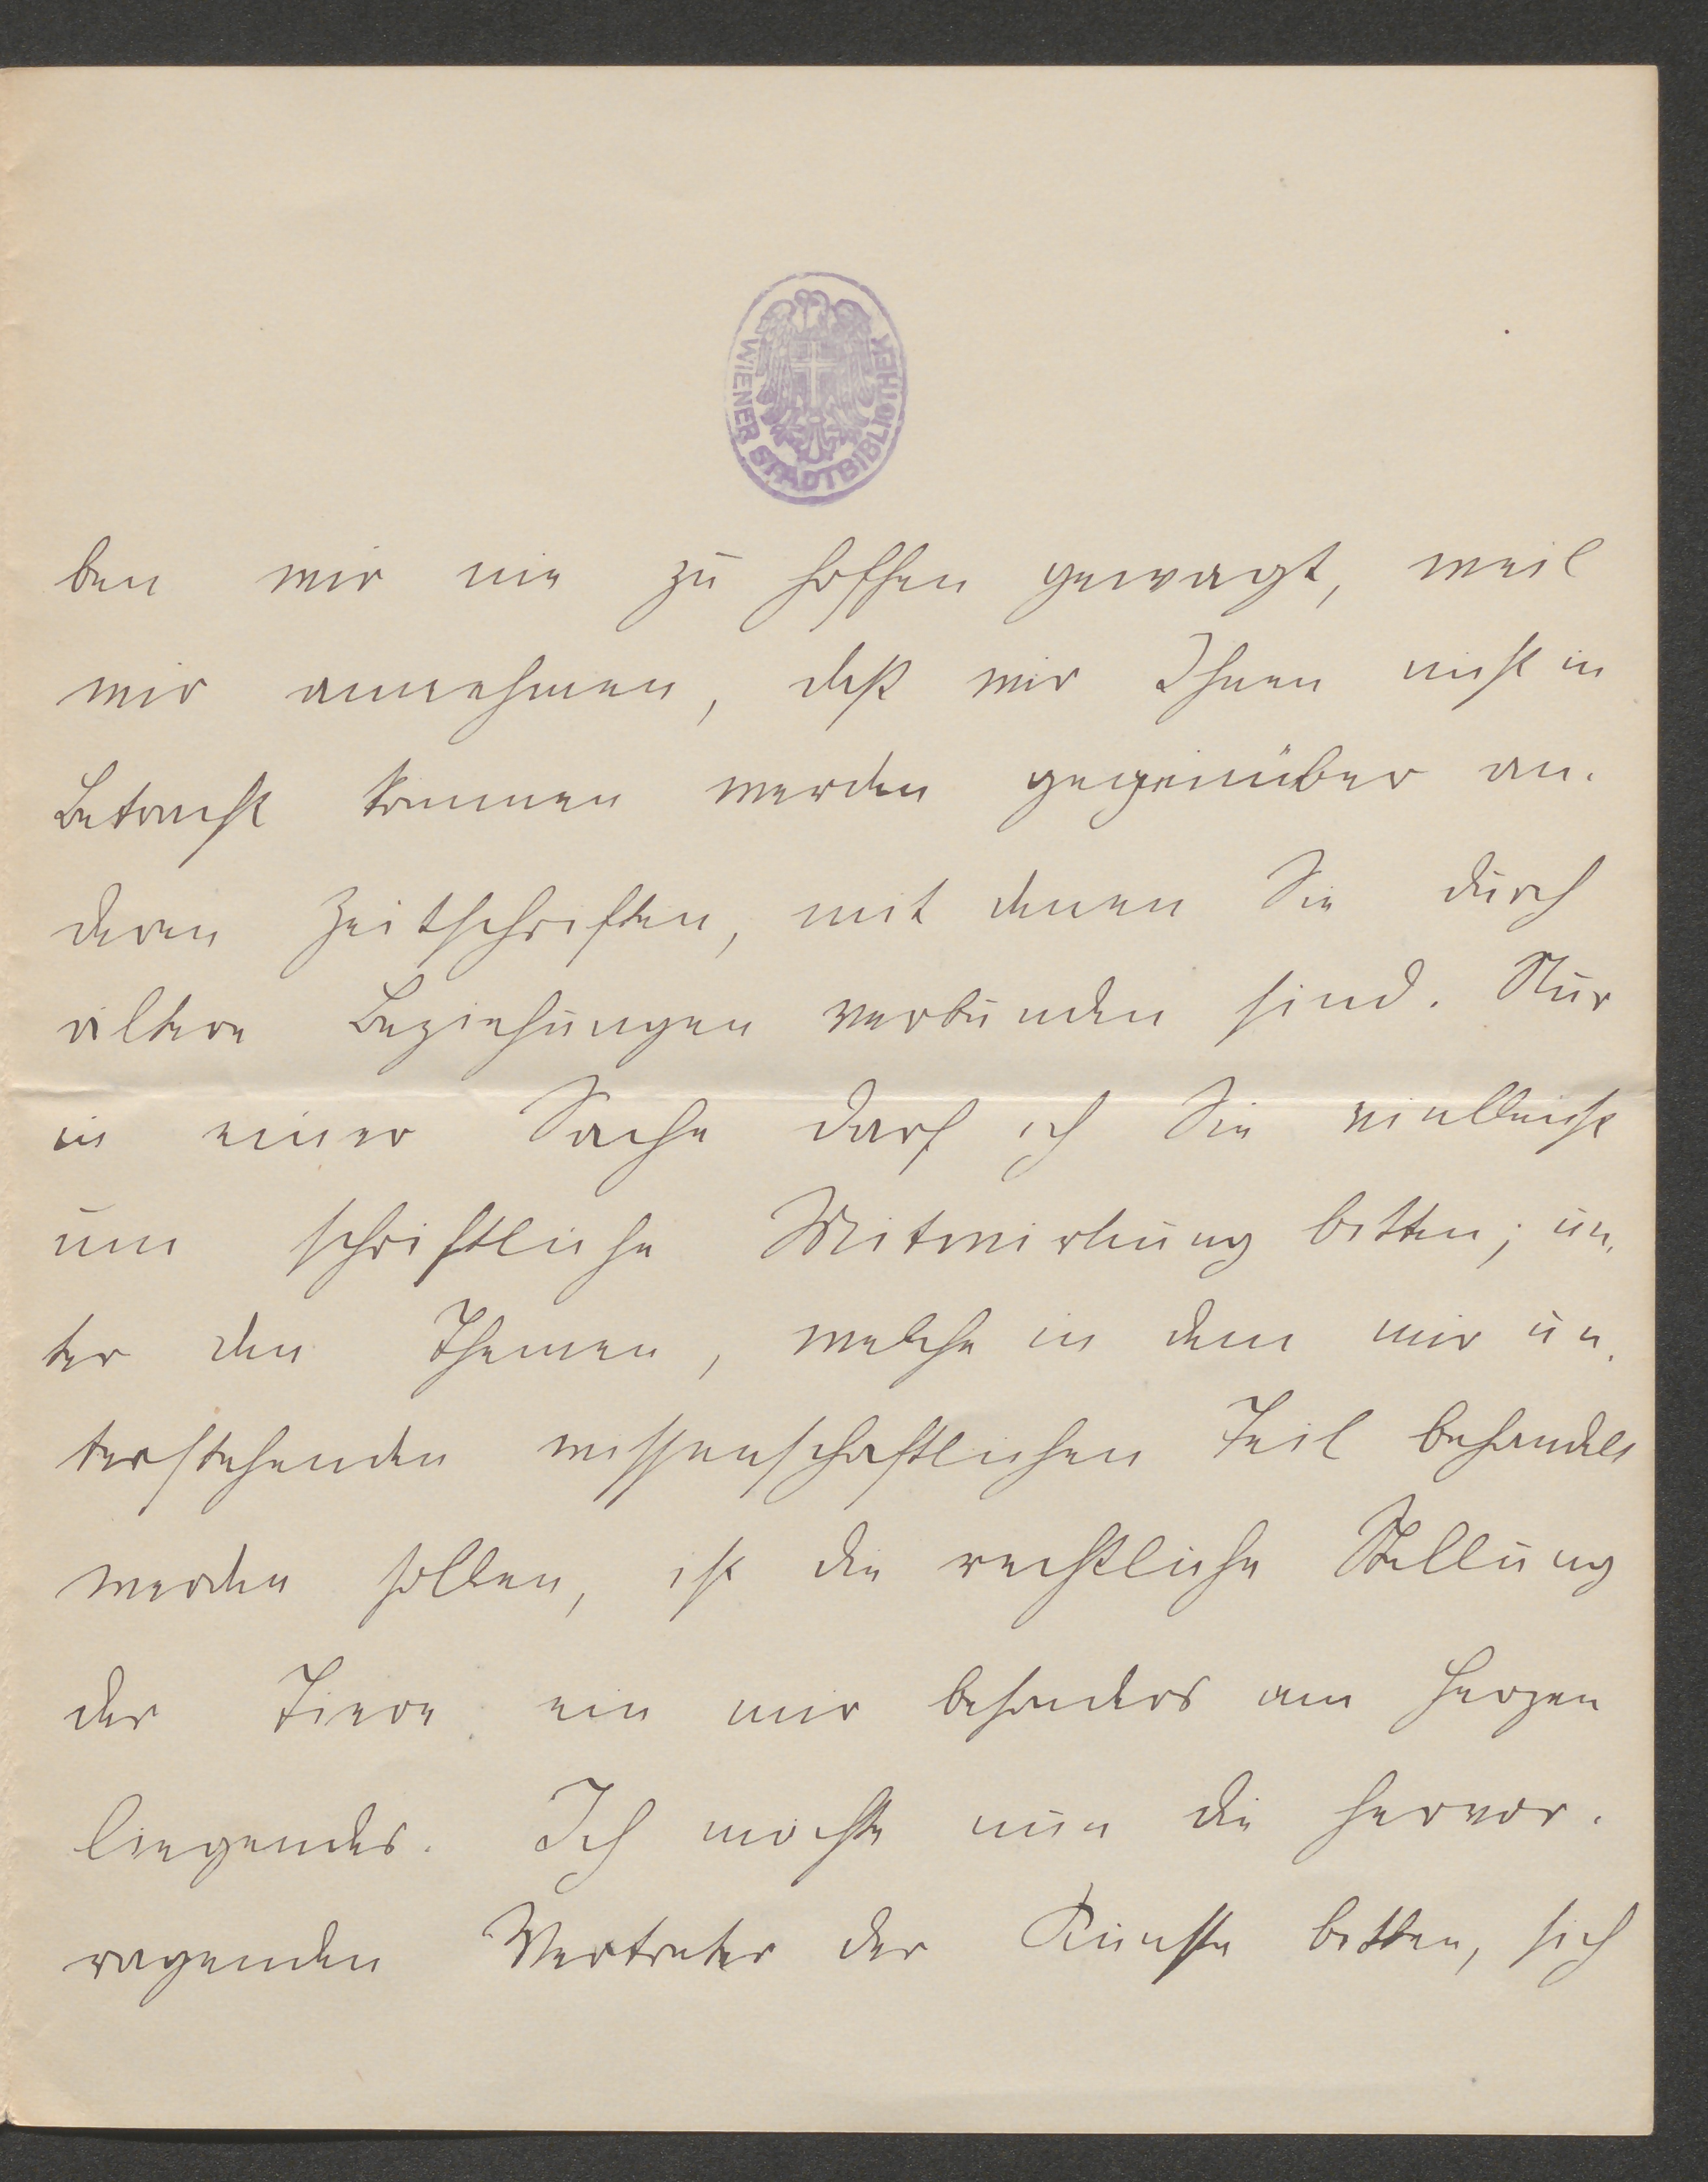 WIENER STADTBIBLIOTHEK
ben wir nie zu hoffen gewagt, weil
wir annehmen, daß wir Ihnen nicht in
Betracht kommen werden gegenüber an-
deren Zeitschriften, mit denen Sie durch
ältere Beziehungen verbunden sind. Nur
in einer Sache darf ich Sie vielleicht
um schriftliche Mitwirkung bitten; un-
ter den Themen, welche in dem mir un-
terstehenden wissenschaftlichen Teil behandelt
werden sollen, ist die rechtliche Stellung
der Tiere ein mir besonders am Herzen
liegendes. Ich möchte nun die hervor-
ragenden Vertreter der Künste bitten, sich